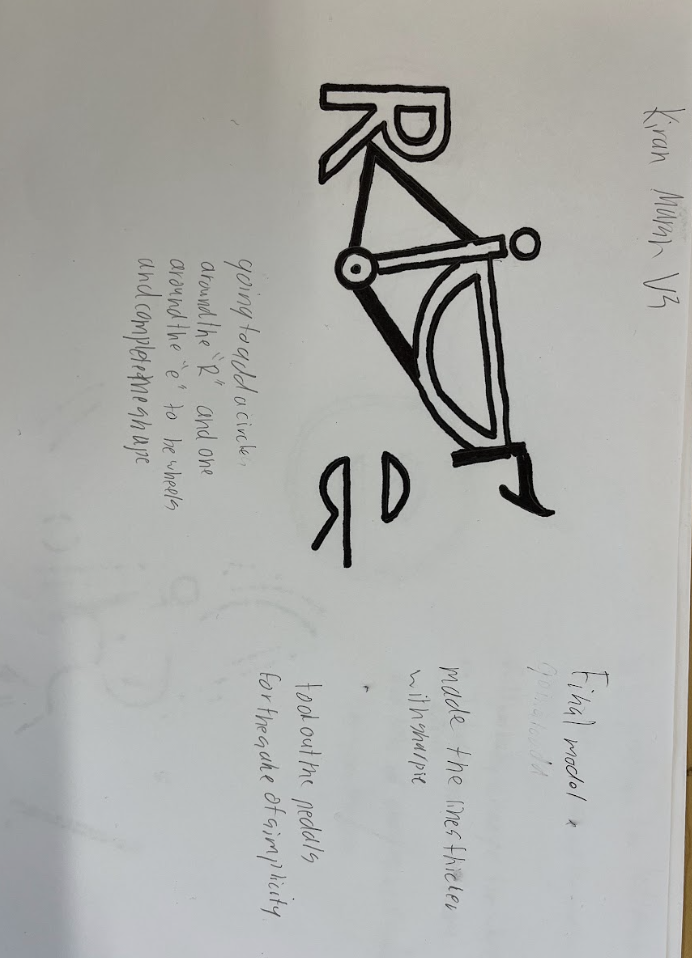 Kiran Marsh V3
Final model
RiDe
made the lines thicker
with sharpie
took out the pedals
for the sake of simplicity
going to add a circle,
around the "R" and one
around the "e" to be wheels
and complete the shape